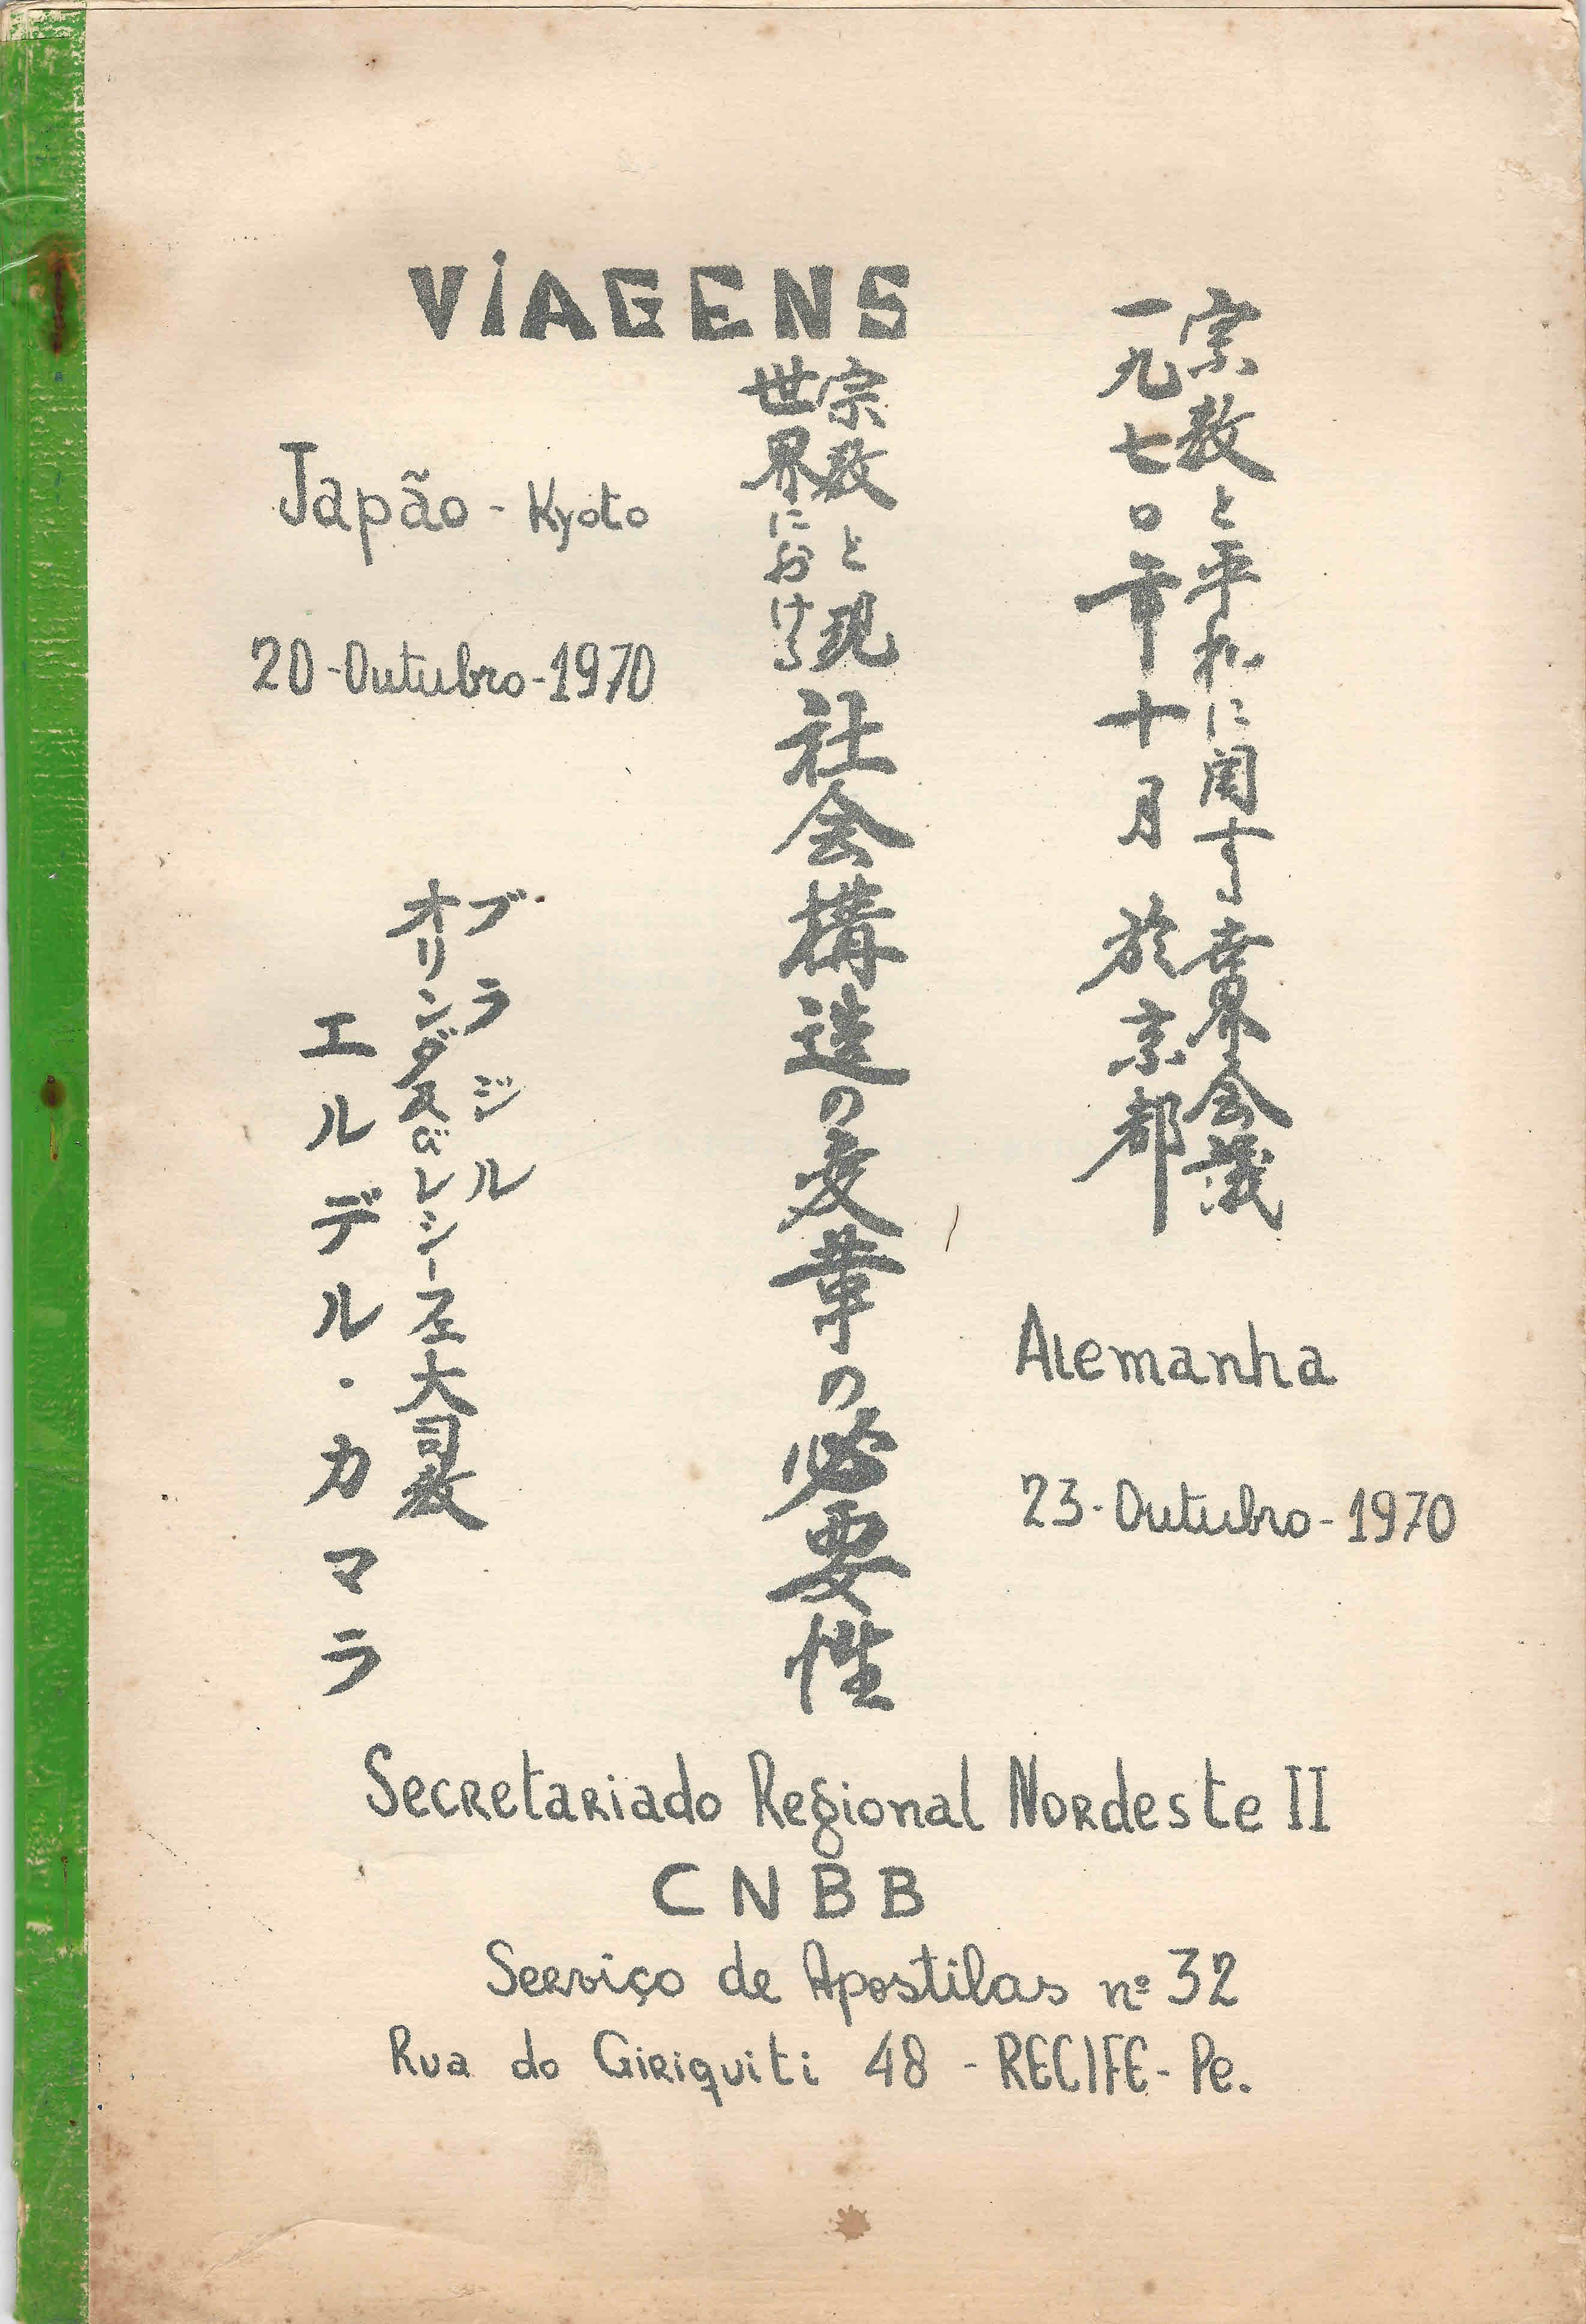 VIAGENS
Japão - Kyoto
20-Outubro-1970
宗教と平和に関する世界会議
一九七〇年十月 於京都
宗教と現
世界における
社会構造の変革の必要性
ブラジル
オリンダ及びレシーフェ大司教
エルデル・カマラ
Alemanha
23-Outubro-1970
Secretariado Regional Nordeste II
CNBB
Serviço de Apostilas nº 32
Rua do Giriquiti 48 - RECIFE - Pe.